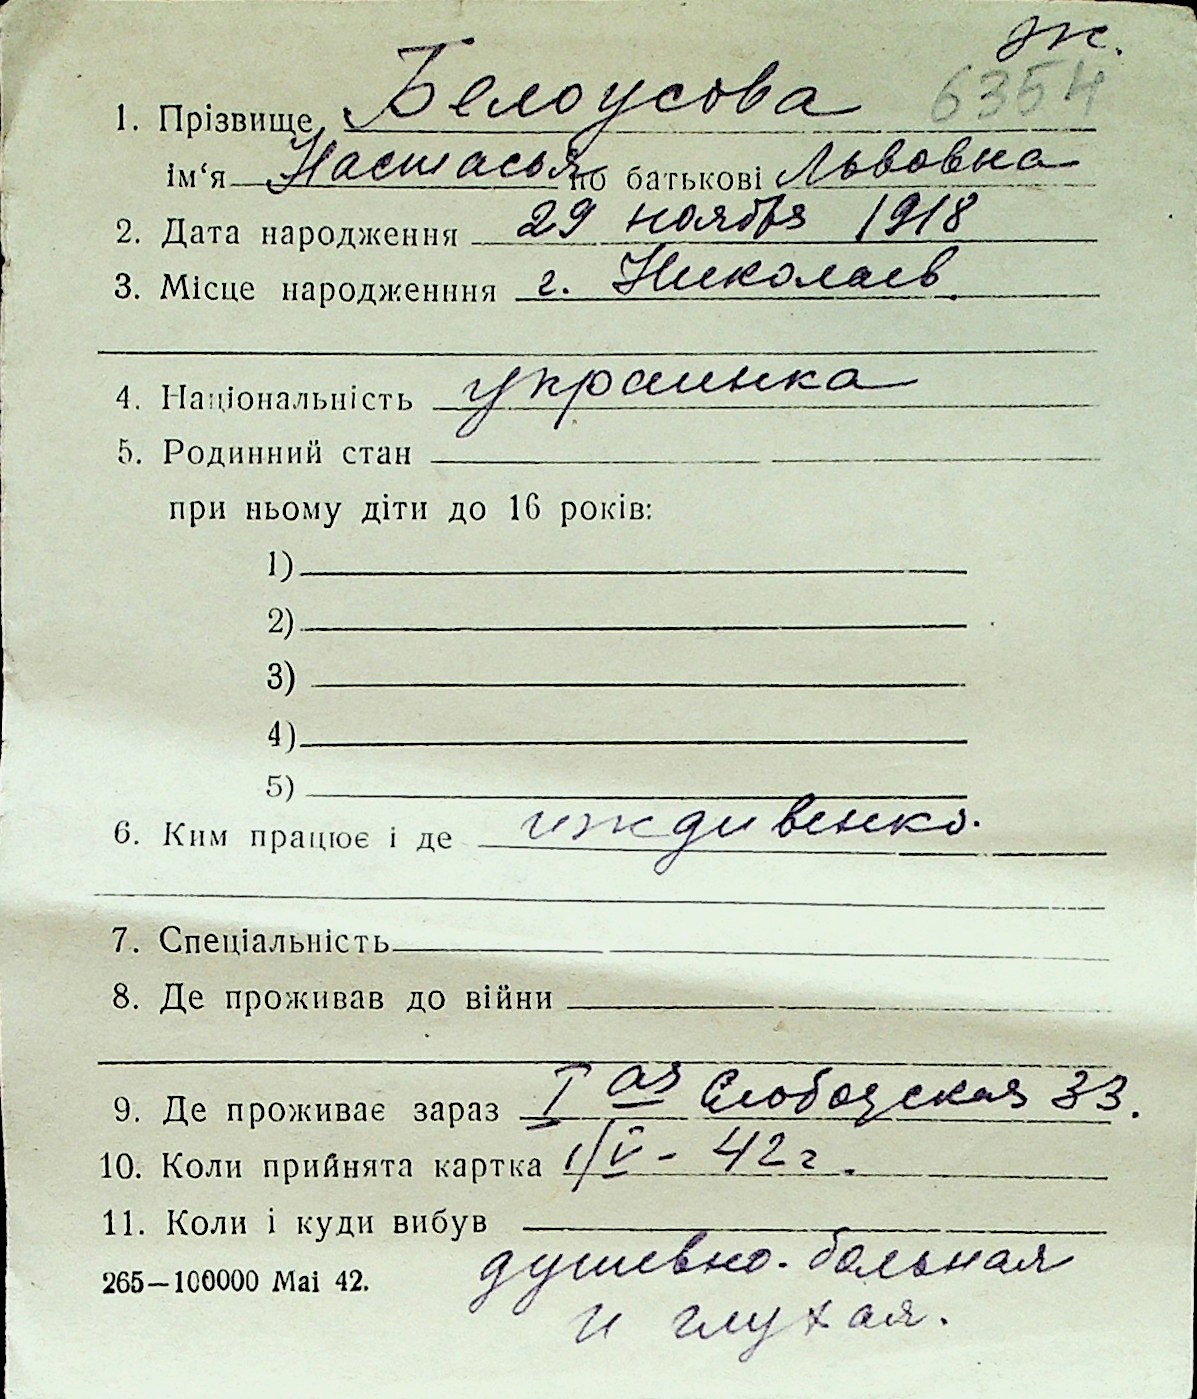 ж.
6354
1. Прізвище Белоусова
ім‘я Настасья по батькові Львовна
2. Дата народження 29 ноября 1918
3. Місце народженння г. Николаев.
4. Національність украинка
5. Родинний стан
при ньому діти до 16 років:
1)
2)
3)
4)
5)
6. Ким працює і де иждивенка.
7. Спеціальність
8. Де проживав до війни
9. Де проживає зараз I ая Слободская 33.
10. Коли прийнята картка 1/V - 42 г.
11. Коли і куди вибув
265—100000 Mai 42.
душевно-больная
и глухая.